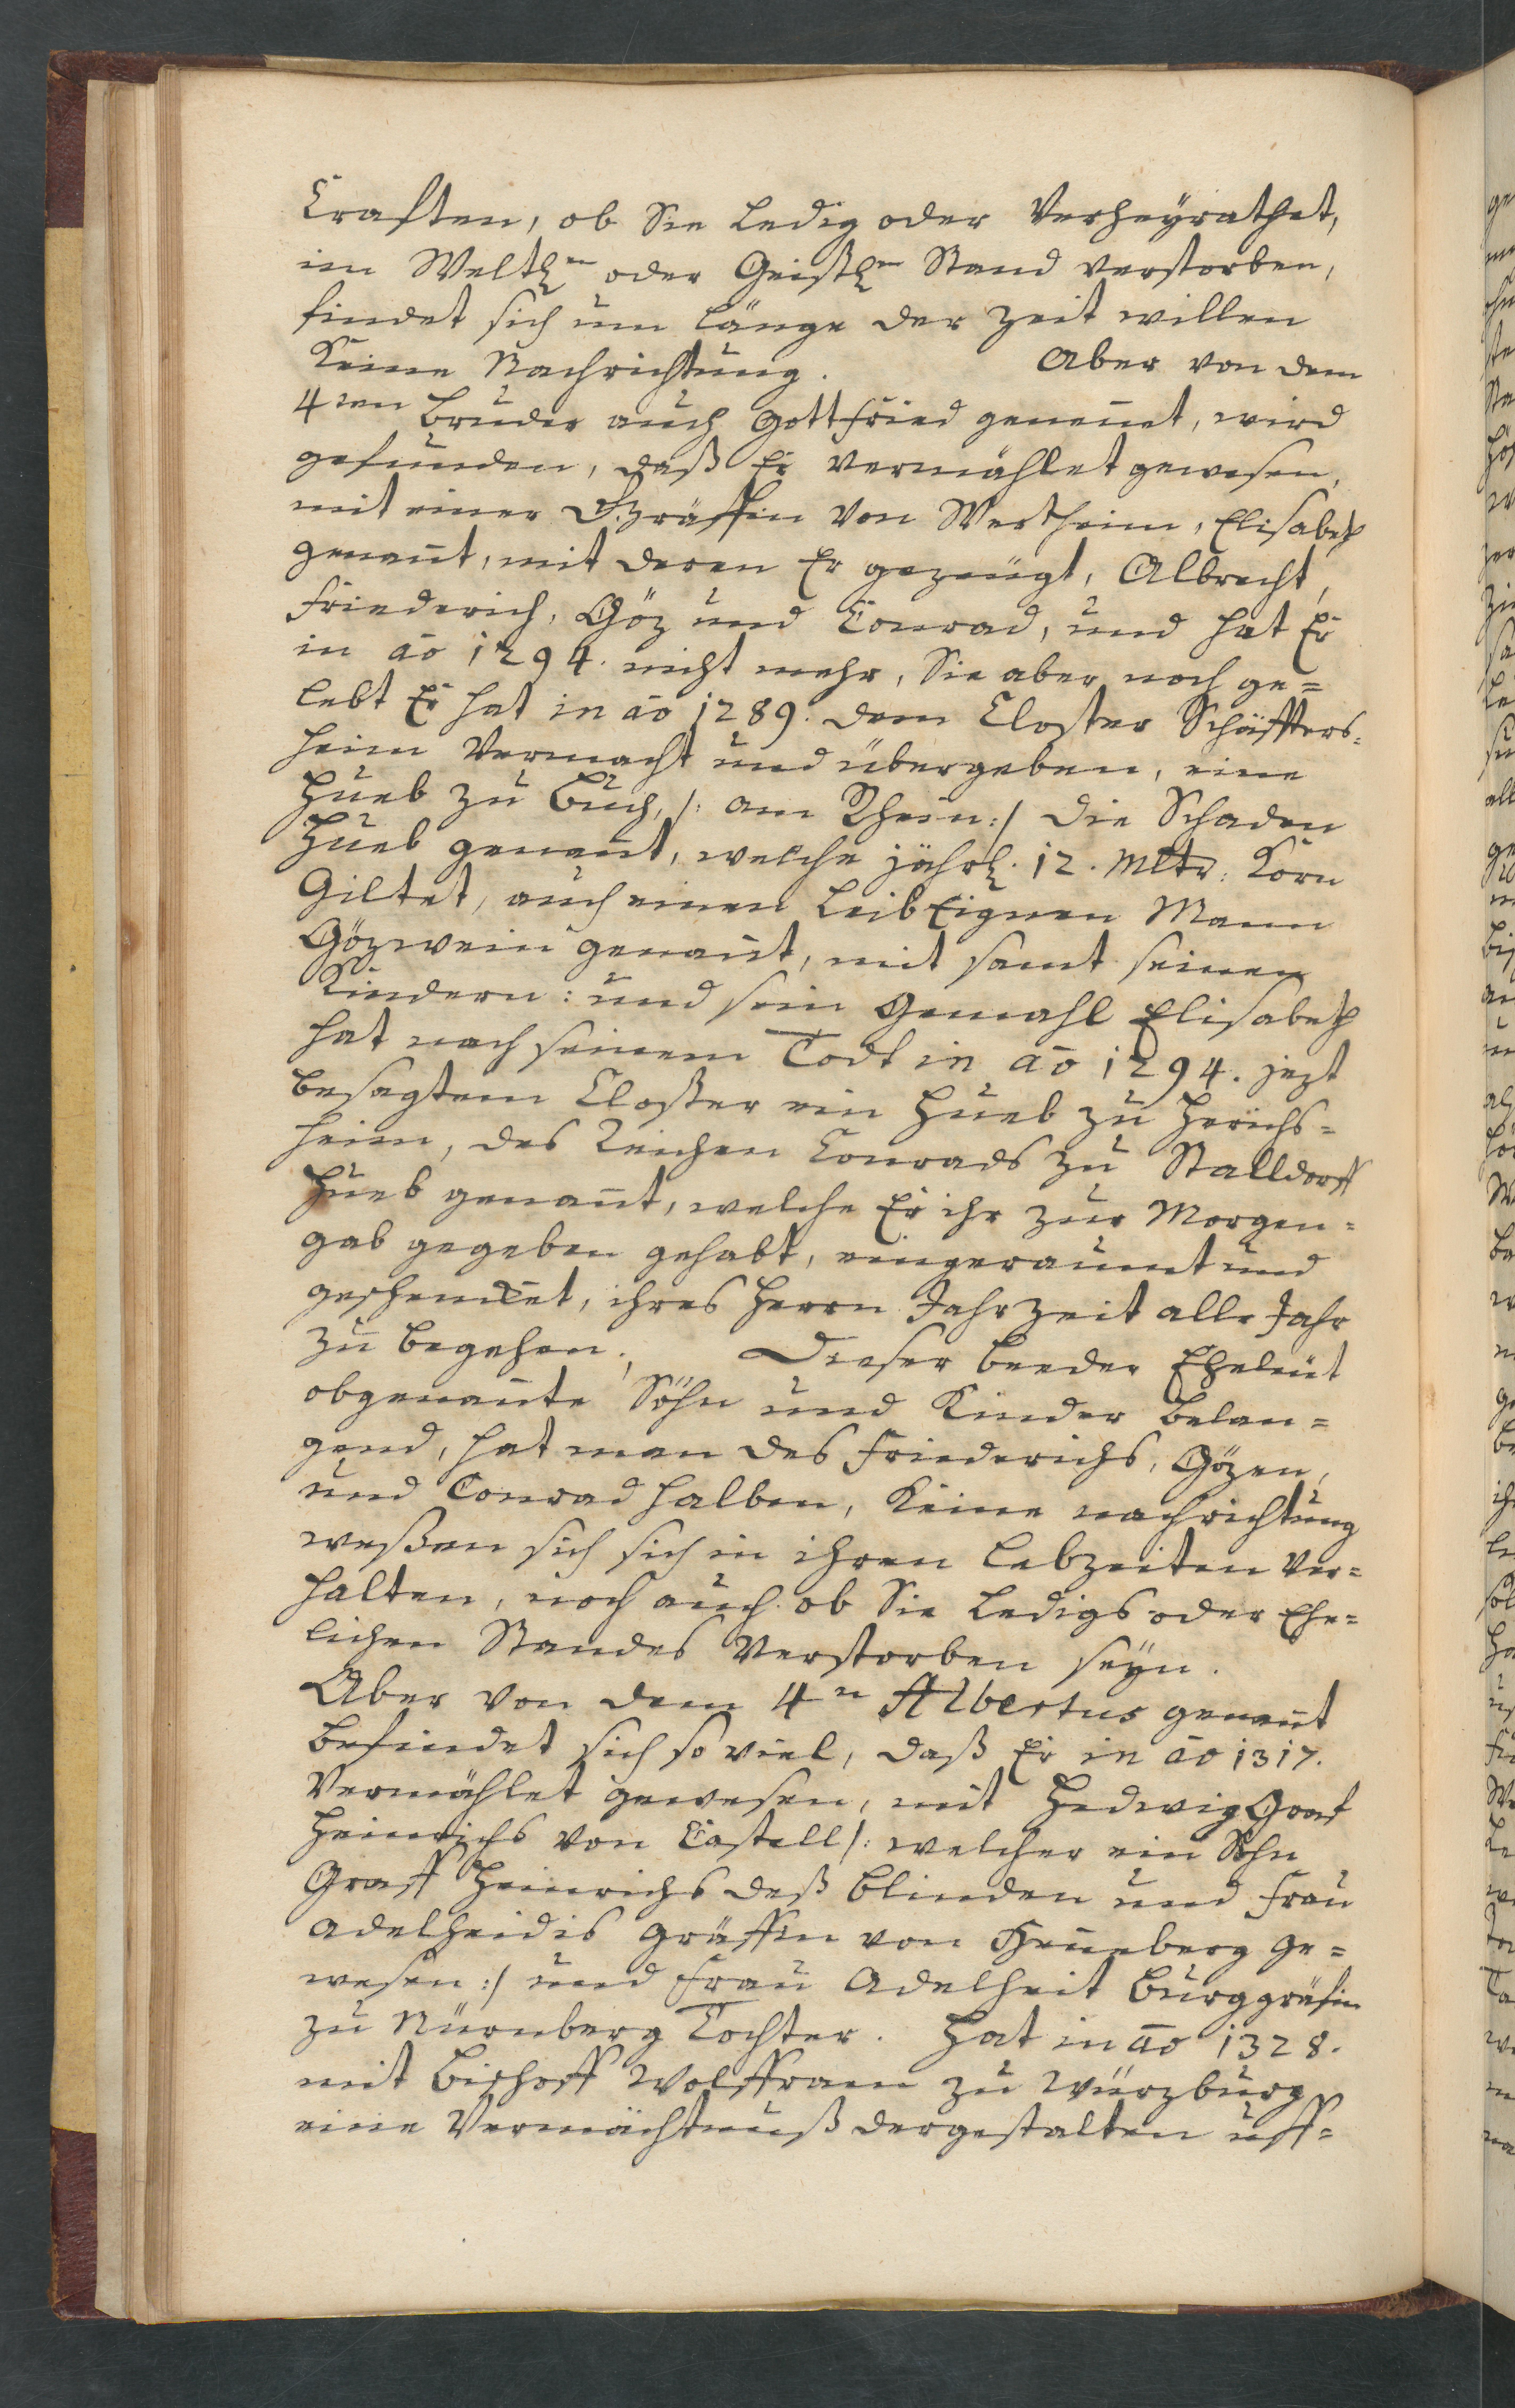 Craften, ob Sie Ledig oder Verheÿrathet,
im Weltl:n oder Geistl:n Stand verstorben,
findet sich um länge der Zeit willen
Keine Nachrichtung. Aber von dem
4ten Bruder auch Gottfried genennet, wird
gefunden, daß Er vermählet gewesen,
mit einer Gräffin von Wertheim, Elisabeth
genannt, mit deren Er gezeugt, Albrecht,
Friederich, Göz und Conrad, und hat Er
in ao 1294. nicht mehr, Sie aber noch ge=
lebt Er hat in ao 1289. dem Closter Schäffters=
heim Vermacht und übergeben, eine
Hueb zu Buch, /: am Rhein :/ die Schaden
Hueb genannt, welche jährl. 12. Mltr: Korn
Giltet, auch einen LeibEignen Mann
Gözwein genannt, mit samt seinen
Kindern: und sein Gemahl Elisabeth
hat nach seinem Todt in ao 1294. jezt
besagtem Closter ein Hueb zu Herichs=
heim, des Reichen Conrads zu Stalldorff
Hueb genannt, welche Er ihr zur Morgen=
gab gegeben gehabt, eingeraumt und
geschencket, ihres Herrn Jahrzeit alle Jahr
zu begehen. Dieser beeder Eheleut
obgenannte Söhn und Kinder belan=
gend, hat man des Friederichs, Gözen,
und Conrad halben, Keine nachrichtung
weßen sich sich in ihren Lebzeiten ver=
halten, noch auch ob Sie Ledigs oder Ehe=
lichen Standes Verstorben seÿn.
Aber von dem 4n Albertus genannt
befindet sich so viel, daß Er in ao 1317.
Vermählet gewesen, mit Hedwig Graf
Heinrichs von Castell /: welcher ein Sohn
Graff Heinrichs deß Blinden und Frau
Adelheidis Gräffin von Henneberg ge=
wesen :/ und Frau Adelheit Burggräfin
zu Nürnberg Tochter. Hat in ao 1328.
mit Bischoff Wolffram zu Würzburg
eine Vermächtnuß dergestalten uff=